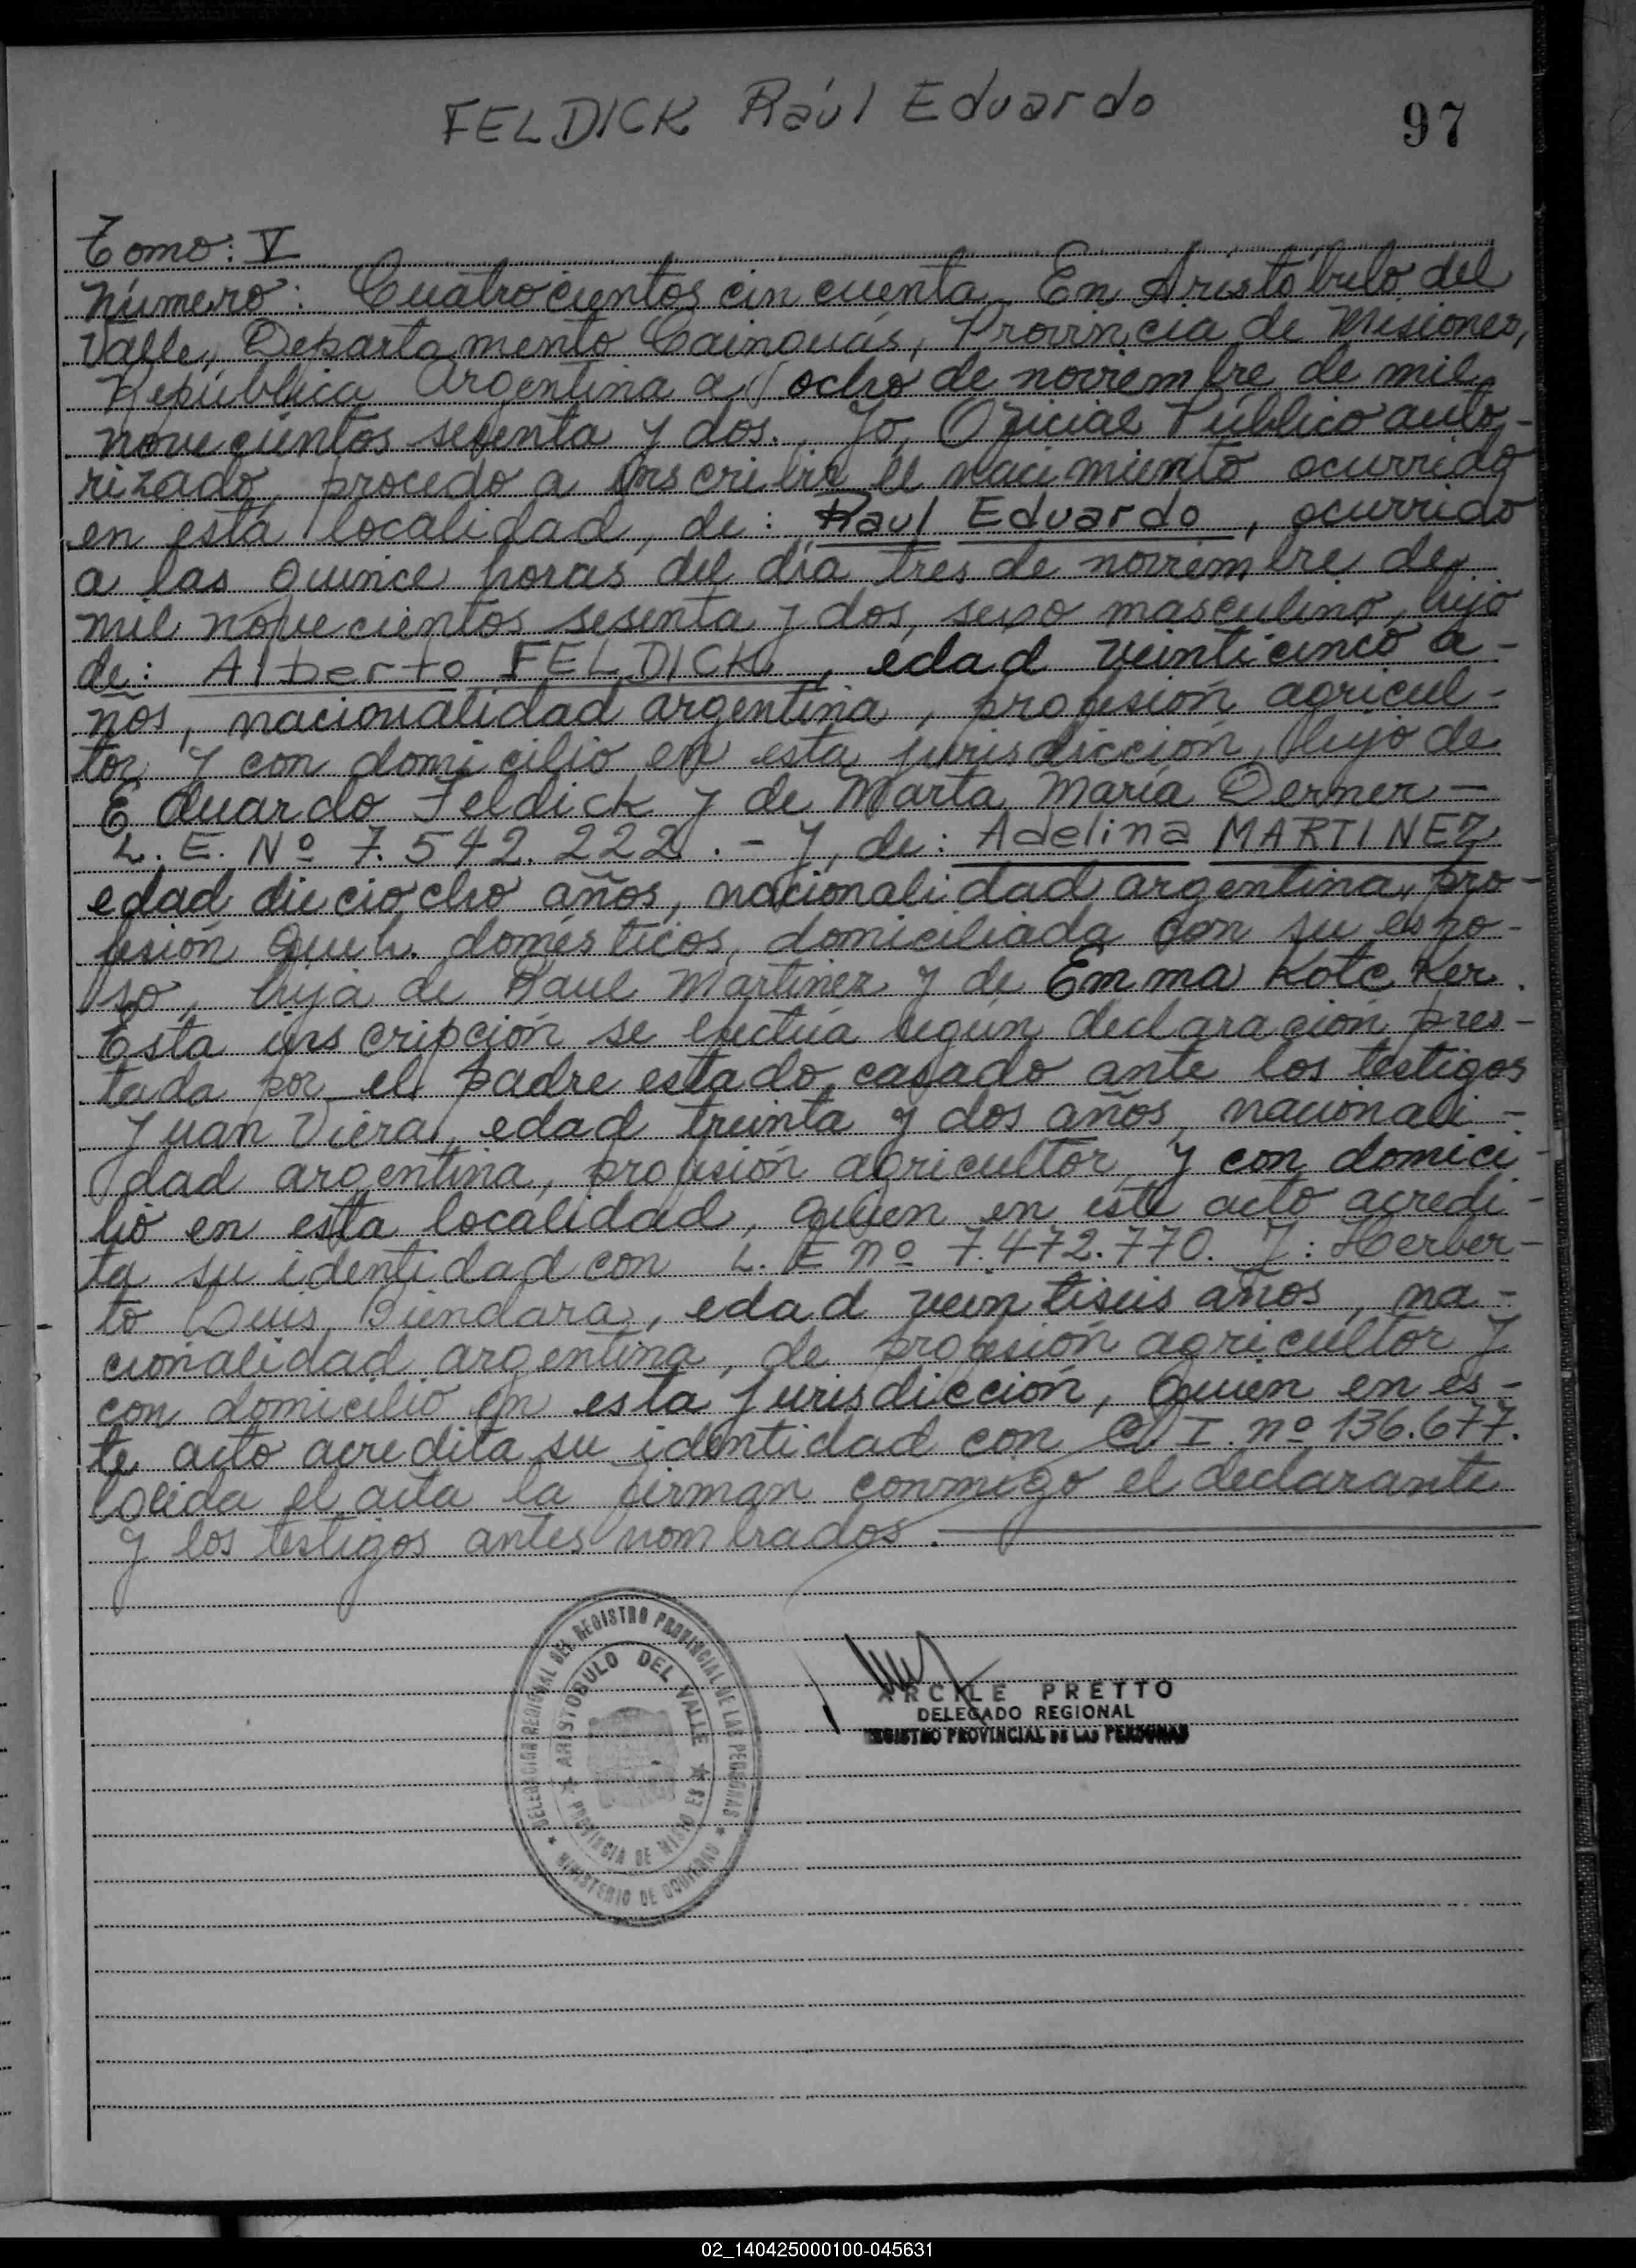 FELDICK Raúl Eduardo
97
Tomo: V
Número: Cuatrocientos cincuenta. En Aristóbulo del
Valle, Departamento Cainguás, Provincia de Misiones,
República Argentina a ocho de noviembre de mil
novecientos sesenta y dos. Yo, Oficial Público auto-
rizado, procedo a inscribir el nacimiento ocurrido
en esta localidad, de: Raul Eduardo, ocurrido
a las quince horas del día tres de noviembre de
mil novecientos sesenta y dos, sexo masculino, hijo
de: Alberto FELDICK, edad veinticinco a-
ños, nacionalidad argentina, profesión agricul-
tor y con domicilio en esta jurisdicción, hijo de
Eduardo Feldick y de Marta María Derner -
L. E. Nº 7.542.222. - Y, de: Adelina MARTINEZ
edad dieciocho años, nacionalidad argentina, pro-
fesión queh. domésticos, domiciliada con su espo-
so, hija de Raul Martinez y de Emma Kotcker.
Esta inscripción se efectúa según declaración pres-
tada por el padre estado casado ante los testigos
Juan Viera, edad treinta y dos años, nacionali-
dad argentina, profesión agricultor y con domici-
lio en esta localidad, quien en este acto acredi-
ta su identidad con L. E nº 7.472.770. Y: Herber-
to Luis Biendara, edad veintiseis años, na-
cionalidad argentina, de profesión agricultor y
con domicilio en esta jurisdicción, quien en es-
te acto acredita su identidad con C. I. nº 136.677.
Leída el acta la firman conmigo el declarante
y los testigos antes nombrados.
DELEGACION REGIONAL DEL REGISTRO PROVINCIAL DE LAS PERSONAS
ARISTOBULO DEL VALLE
PROVINCIA DE MISIONES
MINISTERIO DE GOBIERNO
ARCILE PRETTO
DELEGADO REGIONAL
REGISTRO PROVINCIAL DE LAS PERSONAS
02_140425000100-045631